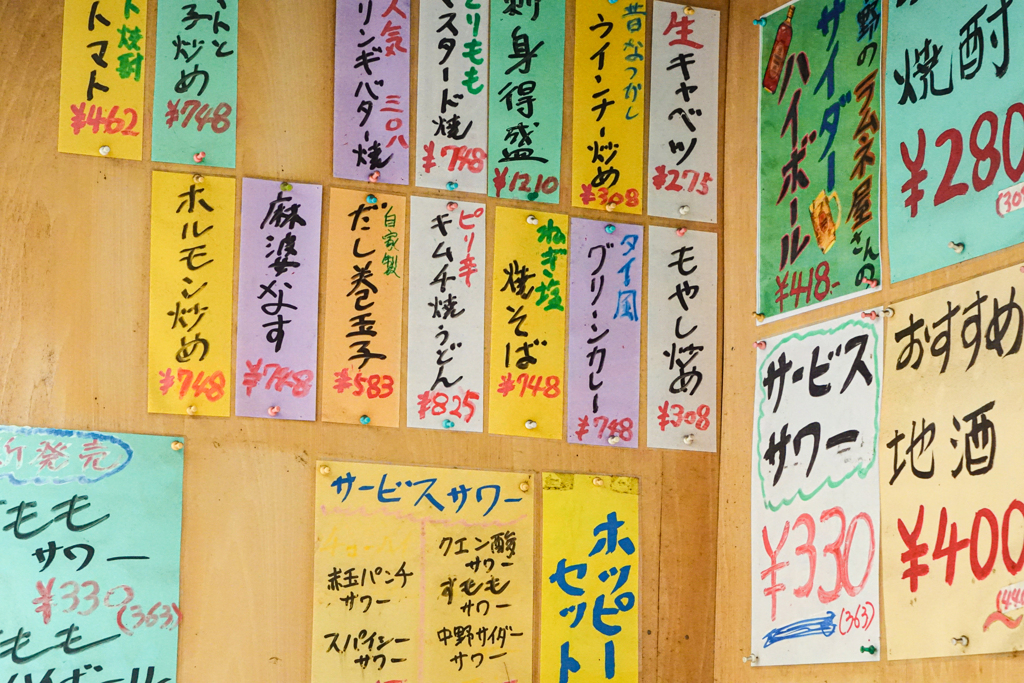 ト焼酎
トマト
¥462
トと
子炒め
¥748
人気
リンギバター焼
三〇八
とりもも
マスタード焼
¥748
刺身得盛
¥1210
昔なつかし
ウインナー炒め
¥308
生キャベツ
¥275
野のラムネ屋さんの
サイダー
ハイボール
¥418-
焼酎
¥280
ホルモン炒め
¥748
麻婆なす
¥748
自家製
だし巻玉子
¥583
ピリ辛
キムチ焼うどん
¥825
ねぎ塩
焼そば
¥748
タイ風
グリーンカレー
¥748
もやし炒め
¥308
サービス
サワー
¥330
(363)
おすすめ
地酒
¥400
発売
すもも
サワー
¥330
(363)
もも
ハイボール
サービスサワー
赤玉パンチ
サワー
スパイシー
サワー
クエン酸
サワー
すもも
サワー
中野サイダー
サワー
ホッピー
セット